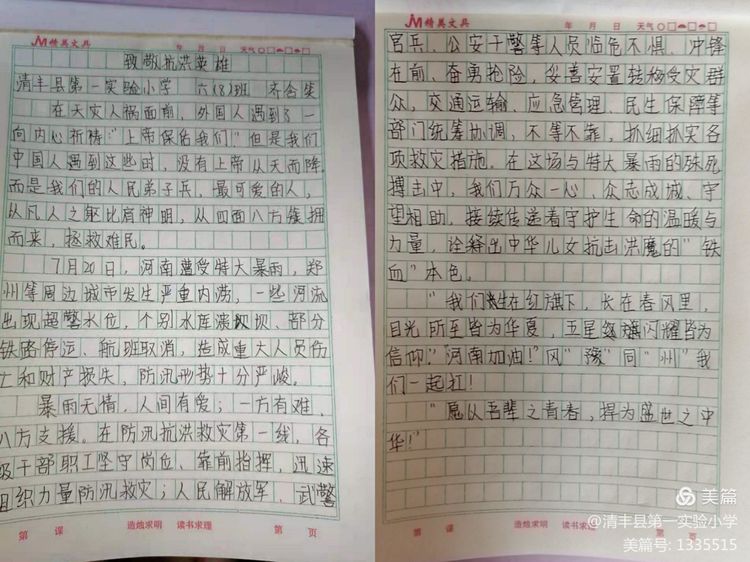 精美文具
年 月 日 天气
致敬抗洪英雄
清丰县第一实验小学 六(8)班 齐合笙
在天灾人祸面前,外国人遇到了一
向内心祈祷:"上帝保佑我们!"但是我们
中国人遇到这些时,没有上帝从天而降,
而是我们的人民弟子兵,最可爱的人,
从凡人之躯比肩神明,从四面八方簇拥
而来,拯救难民。
7月20日,河南遭受特大暴雨,郑
州等周边城市发生严重内涝,一些河流
出现超警水位,个别水库溃坝、部分
铁路停运、航班取消,造成重大人员伤
亡和财产损失,防汛形势十分严峻。
暴雨无情,人间有爱;一方有难,
八方支援。在防汛抗洪救灾第一线,各
级干部职工坚守岗位、靠前指挥,迅速
组织力量防汛救灾;人民解放军、武警
第 课 造烛求明 读书求理 第 页
精美文具
年 月 日 天气
官兵、公安干警等人员临危不惧、冲锋
在前、奋勇抢险,妥善安置转移受灾群
众,交通运输、应急管理、民生保障等
部门统筹协调,不等不靠,抓细抓实各
项救灾措施。在这场与特大暴雨的殊死
搏击中,我们万众一心、众志成城、守
望相助,接续传递着守护生命的温暖与
力量,诠释出中华儿女抗击洪魔的"铁
血"本色。
"我们生在红旗下,长在春风里,
目光所至皆为华夏,五星红旗闪耀皆为
信仰。"河南加油!"风"豫"同"州"我
们一起扛!
"愿以吾辈之青春,捍为盛世之中
华!"
第 课 造烛求明 读书求理 第 页
美篇
@清丰县第一实验小学
美篇号: 1335515